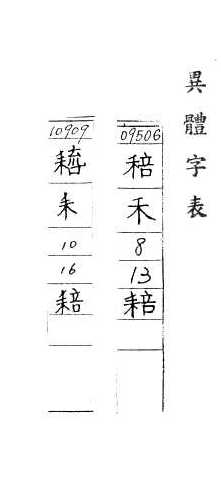 異體字表
09506
稖
禾
8
13
䎧
10909
耒
10
16
䎧